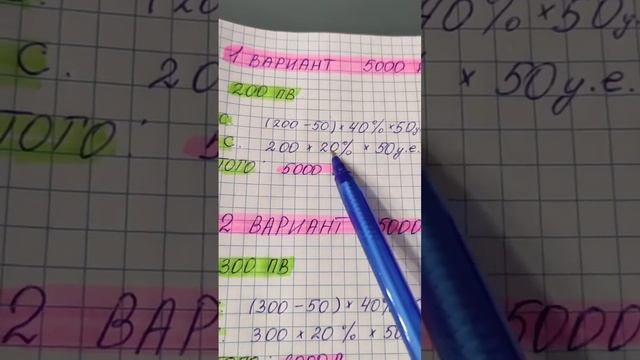 1 ВАРИАНТ 5000
200 ПВ
С. (200 - 50) × 40% × 50у
С. 200 × 20% × 50у.е.
ТОТО: 5000
2 ВАРИАНТ 5000
300 ПВ
(300 - 50) × 40%
300 × 20% × 50